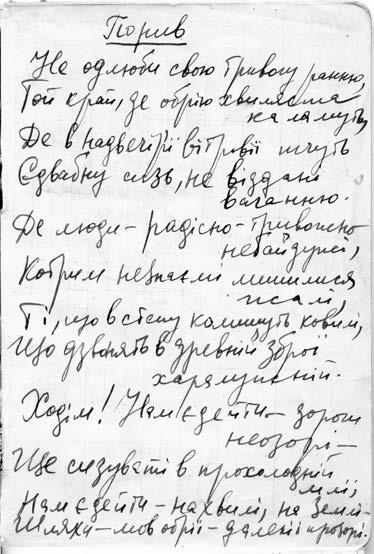 Порив
Не одлюби свою тривогу ранню,
Той край, де обрію хвиляста
каламуть,
Де в надвечір'ї вітровії тчуть
Єдвабну сизь, не віддані
ваганню.
Де люди – радісно-тривожно
небайдужі,
Котрим незнаємі лишилися
жалі,
Ті, що в степу колишуть ковилі,
Що дзвонять в древній зброї
харалужній.
Ходім! Нам є де йти – зорош
неозорі –
Ще сизуваті в прохолодній
млі,
Нам є де йти – на хвилі, на землі –
Шляхи – мов обрії – далекі і прозорі.